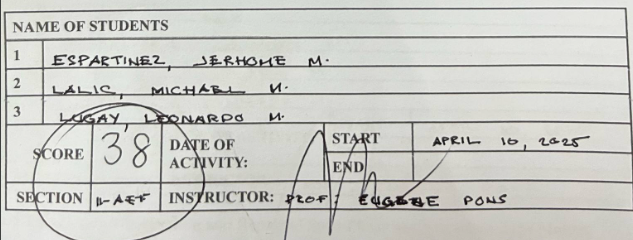 NAME OF STUDENTS
1 ESPARTINEZ, JERHOME M.
2 LALIC, MICHAEL M.
3 LUGAY, LEONARDO M.
SCORE 38 DATE OF ACTIVITY: START APRIL 10, 2025
END
SECTION INSTRUCTOR: PROF. EUGENE PONS